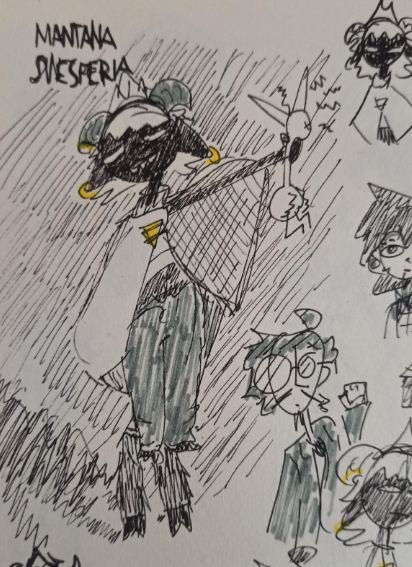 MANTANA
SVESPERIA